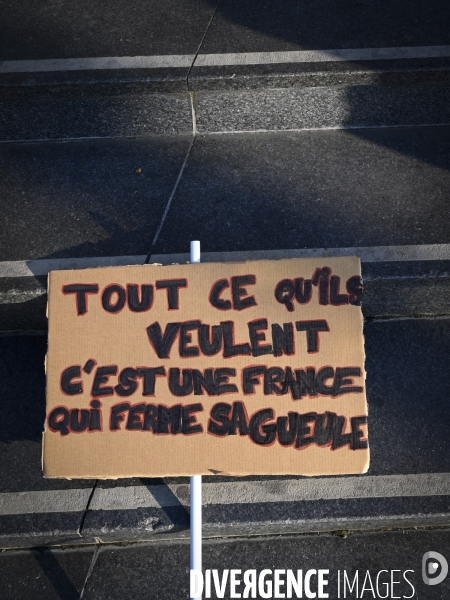 TOUT CE QU'ILS
VEULENT
C'EST UNE FRANCE
QUI FERME SA GUEULE
DIVERGENCE IMAGES